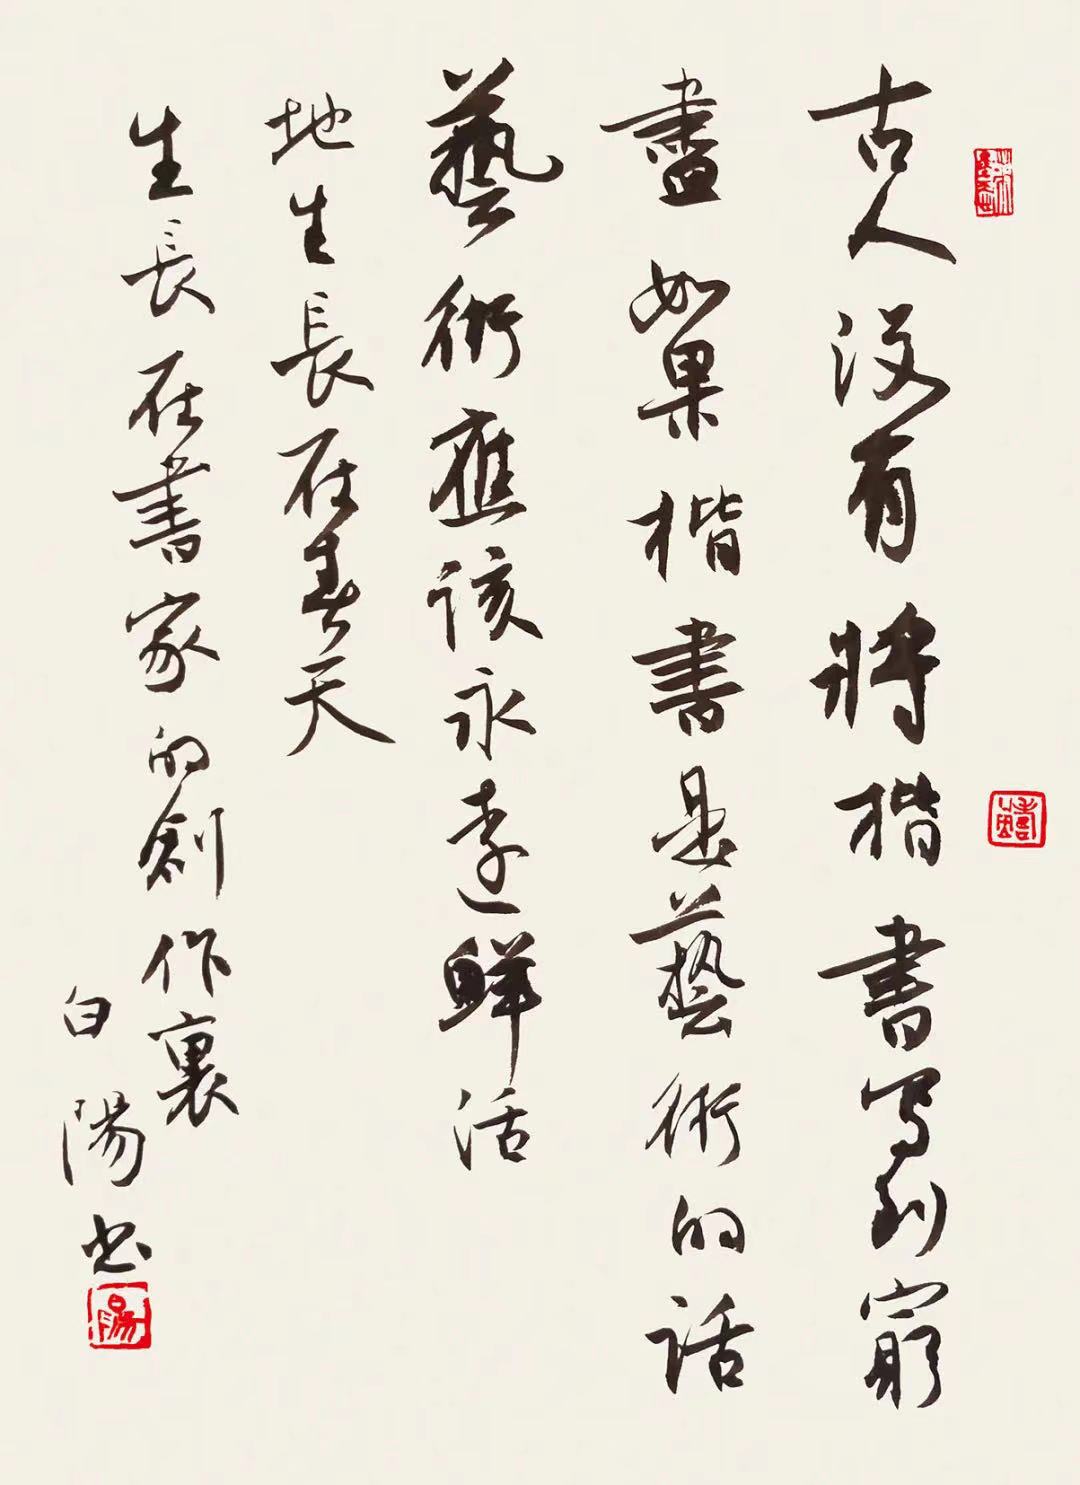 古人没有將楷書写到窮
盡如果楷書是藝術的話
藝術應該永遠鮮活
地生長在春天
生長在書家的創作裏
白陽书